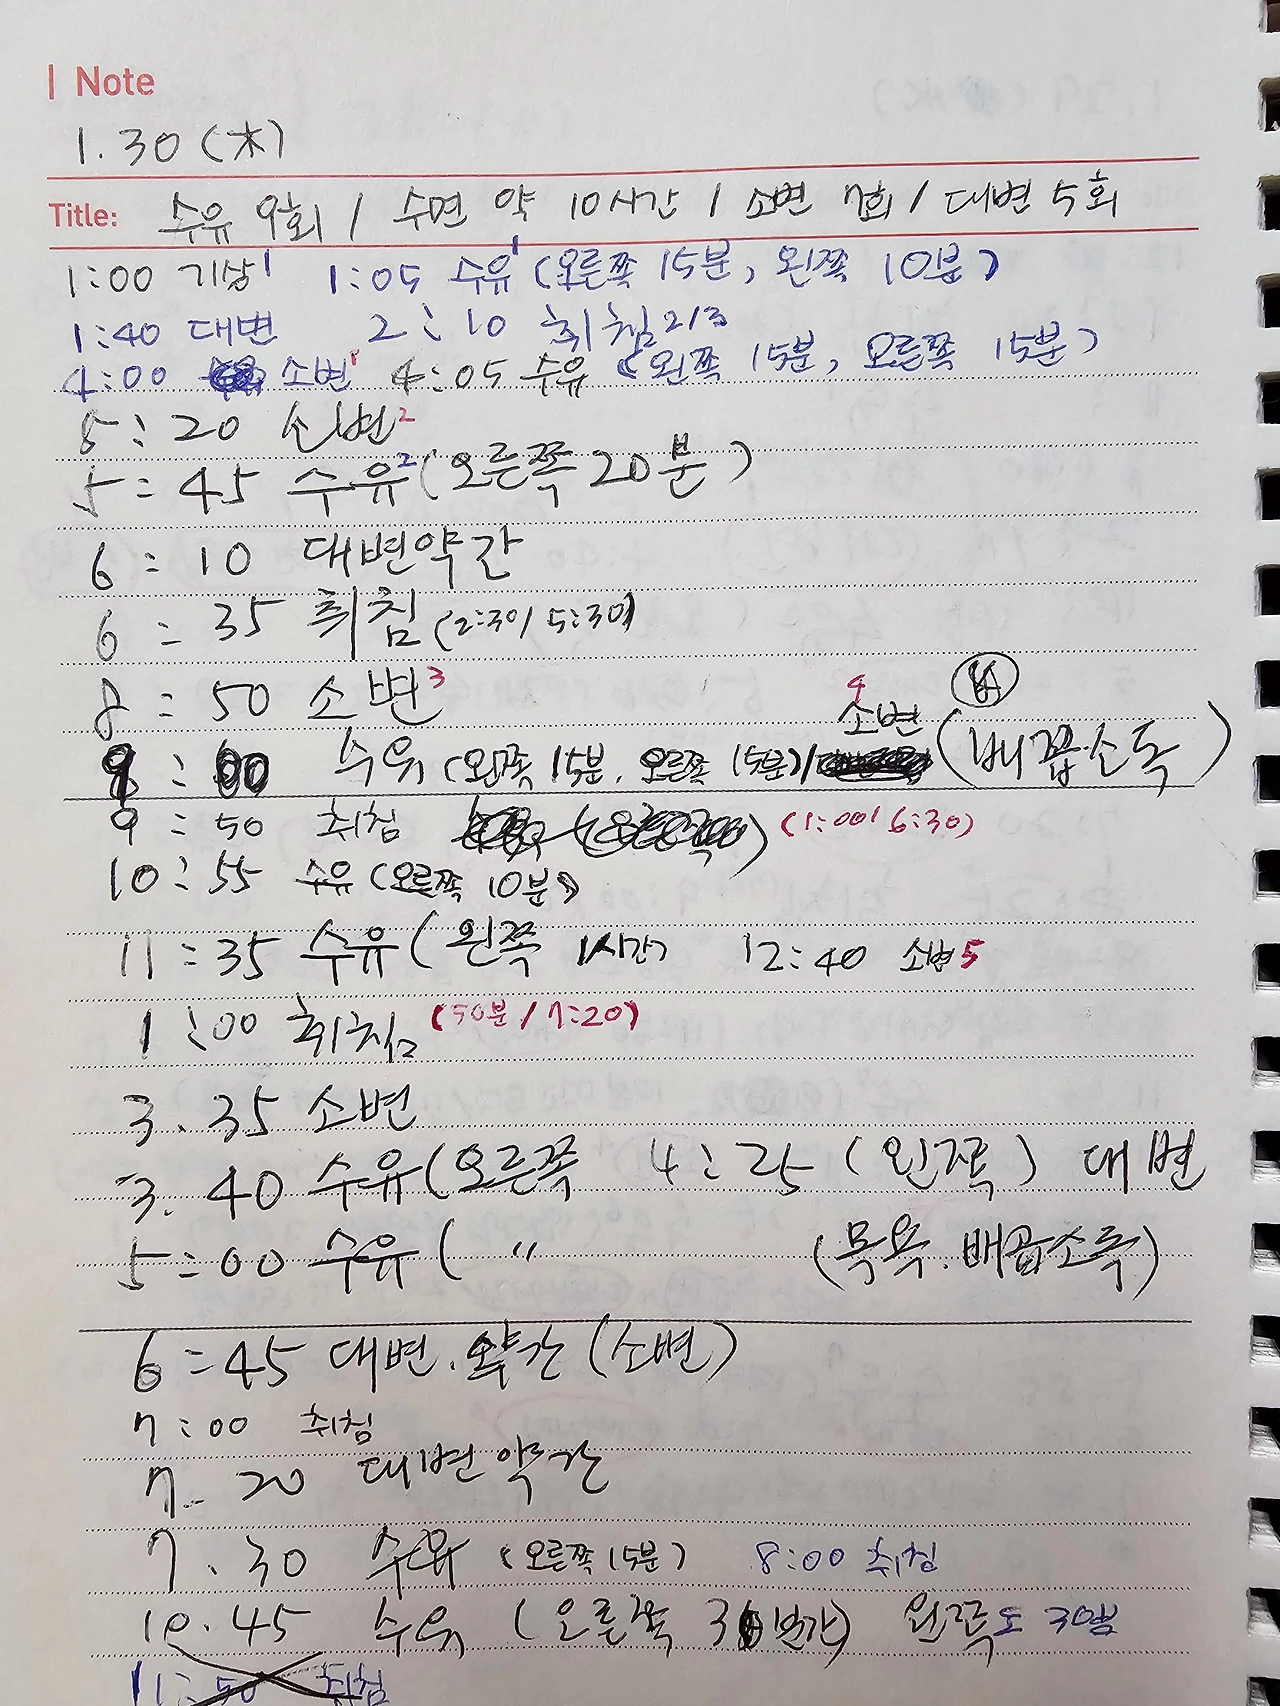 Note
1.30 (木)
Title: 수유 9회 / 수면 약 10시간 / 소변 7회 / 대변 5회
1:00 기상1 1:05 수유1 (오른쪽 15분, 왼쪽 10분)
1:40 대변 2:10 취침 2/3
4:00 소변1 4:05 수유 (왼쪽 15분, 오른쪽 15분)
5:20 소변2
5:45 수유2 (오른쪽 20분)
6:10 대변약간
6:35 취침 (2:30/5:30)
8:50 소변3
9:00 수유 (왼쪽 15분. 오른쪽 15분)/ 소변4 (배꼽소독)
9:50 취침 (1:00/6:30)
10:55 수유 (오른쪽 10분)
11:35 수유 (왼쪽 1시간) 12:40 소변5
1:00 취침 (50분/7:20)
3.35 소변
3.40 수유 (오른쪽 4:25 (왼쪽) 대변
5:00 수유 ( " (목욕.배꼽소독)
6:45 대변.약간 (소변)
7:00 취침
7.20 대변약간
7.30 수유 (오른쪽 15분) 8:00 취침
10.45 수유 (오른쪽 30분간) 왼쪽도 30분
11:50 취침